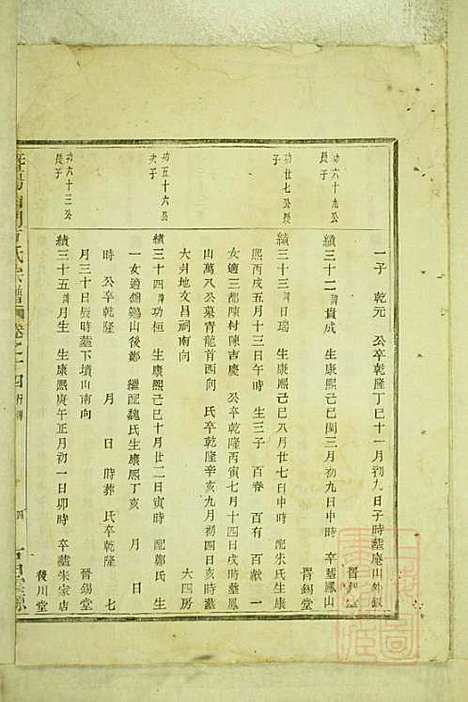 一子 乾元 公卒乾隆丁巳十一月初九日子時葬
功六十九公
長子
績三十二諱貴成 生康熙己巳閏三月初九日申時 卒葬鳳山
晉錫堂
功廿七公長
子
績三十三諱日瑞 生康熙己巳八月廿七日申時 配朱氏生康
熙丙戌五月十三日午時 生三子 百春 百有 百獻 一
女適三都陳村陳吉慶 公卒乾隆丙寅七月十四日戌時葬鳳
山萬八公墓青龍首西四向 氏卒乾隆辛亥九月初四日亥時葬
大井地文昌祠南向
大四房
功五十六公
次子
績三十四諱功桓 生康熙己巳十月廿二日寅時 配鄭氏 生
一女適 山後鄭 繼配魏氏生康熙丁亥 月 日
時 公卒乾隆 月 日 時葬 氏卒乾隆 七
月三十日辰時葬下墳山南向
晉錫堂
功六十三公
長子
績三十五諱月生 生康熙庚午正月初一日卯時 卒葬朱家店
後川堂
氏宗譜
卷之十四
行傳
四